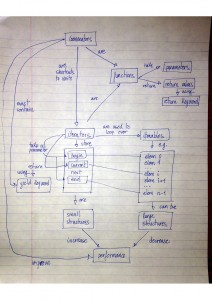 Generators
are
shortcuts
to write
are
functions
take
parameters
return
return values
using
return keyword
must
contain
are
Iterators
are used to
loop over
Iterables
store
e.g.
take as
parameter
begin
current
next
end
return
using
yield keyword
elem 0
elem 1
elem i
elem i+1
elem n-1
are
can be
small
structures
large
structures
increase
decrease
performance
improve